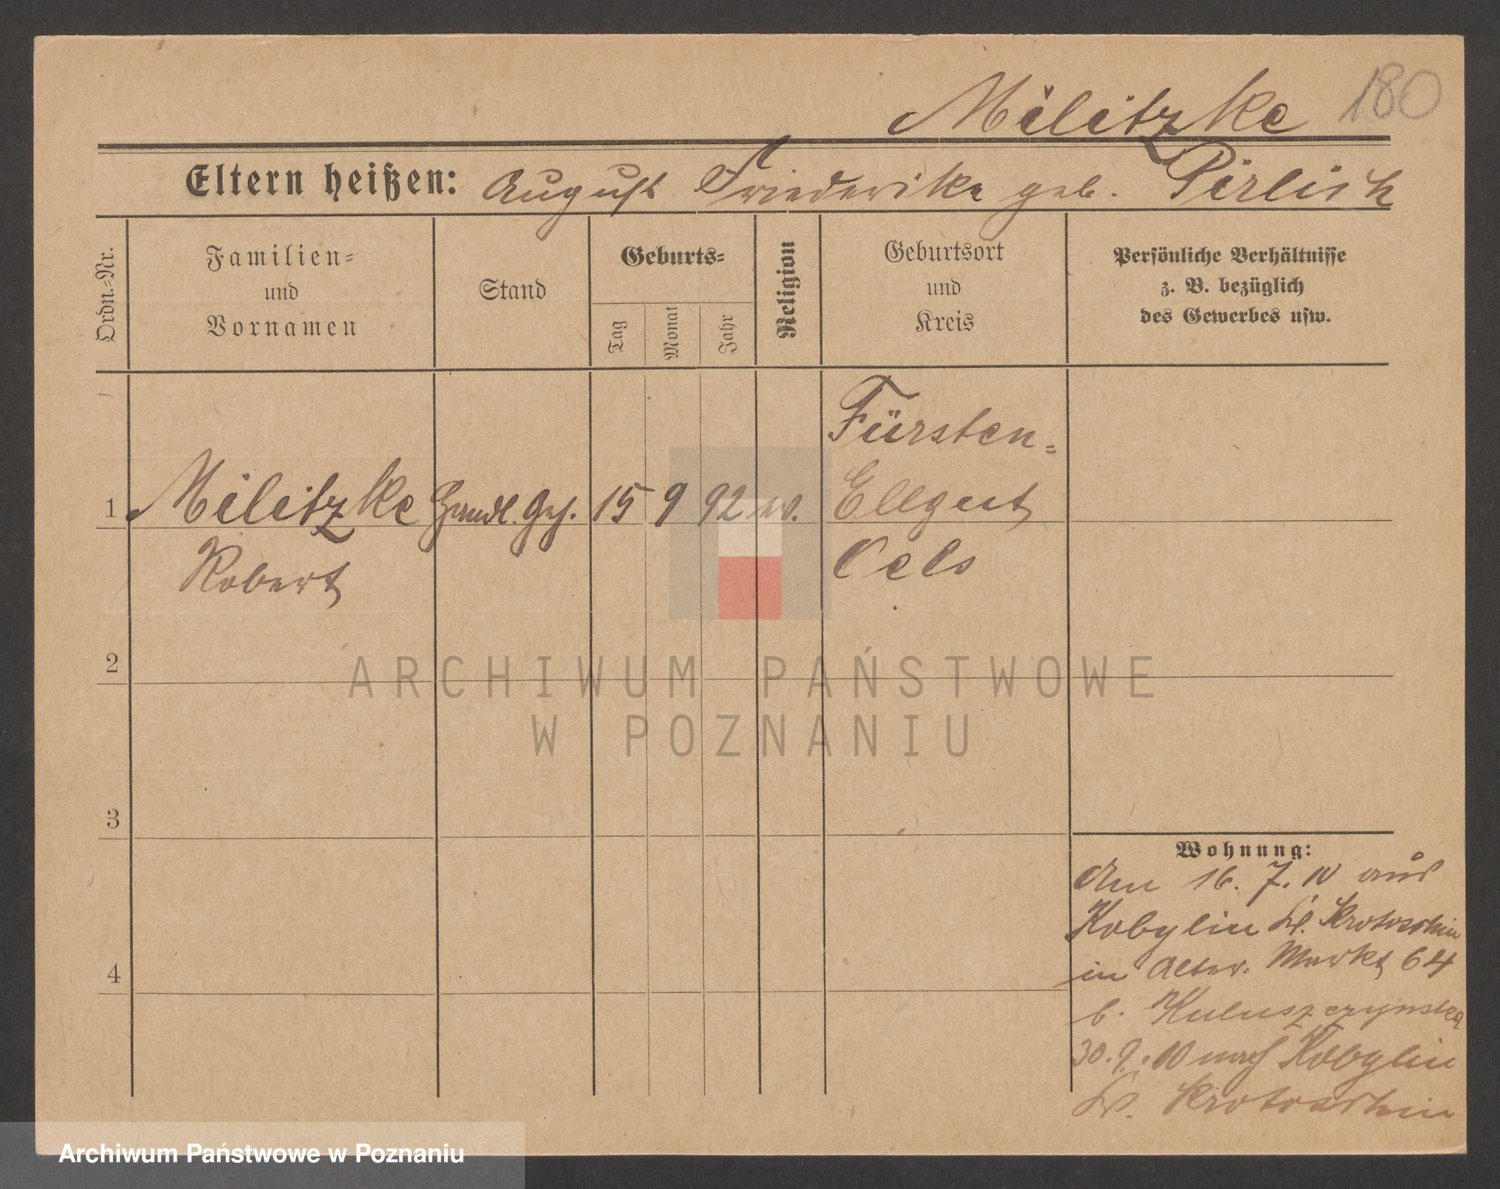 Militzke 180
Eltern heißen: August Friederike geb. Pirlich
Ordn.=Nr.
Familien=
und
Vornamen
Stand
Geburts=
Tag
Monat
Jahr
Religion
Geburtsort
und
Kreis
Persönliche Verhältnisse
z. B. bezüglich
des Gewerbes usw.
1 Militzke Handl. Geh. 15 9 92 ev. Fürsten=
Ellgut
Robert Oels
2
ARCHIWUM PAŃSTWOWE
W POZNANIU
3
Wohnung:
Am 16. 7. 10 aus
Kobylin Kr. Krotoschin
in Alter. Markt 64
b. 
30. 9. 10 nach Kobylin
Kr. Krotoschin
4
Archiwum Państwowe w Poznaniu